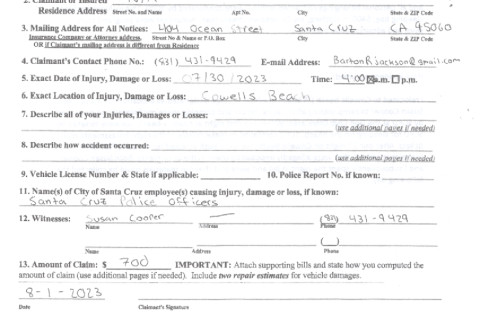 Residence Address Street No. and Name Apt No. City State & ZIP Code
3. Mailing Address for All Notices: 404 Ocean Street Santa Cruz CA 95060
Insurance Company or Attorney address. Street No & Name or P.O. Box City State & ZIP Code
OR if Claimant's mailing address is different from Residence
4. Claimant's Contact Phone No.: (831) 431-9429 E-mail Address: BartonRjackson@gmail.com
5. Exact Date of Injury, Damage or Loss: 07/30/2023 Time: 4:00 ☒a.m. ☐p.m.
6. Exact Location of Injury, Damage or Loss: Cowells Beach
7. Describe all of your Injuries, Damages or Losses:
(use additional pages if needed)
8. Describe how accident occurred:
(use additional pages if needed)
9. Vehicle License Number & State if applicable: 10. Police Report No. if known:
11. Name(s) of City of Santa Cruz employee(s) causing injury, damage or loss, if known:
Santa Cruz Police Officers
12. Witnesses: Susan Cooper — 431-9429
Name Address Phone
( )
Name Address Phone
13. Amount of Claim: $ 700 IMPORTANT: Attach supporting bills and state how you computed the
amount of claim (use additional pages if needed). Include two repair estimates for vehicle damages.
8-1-2023
Date Claimant's Signature